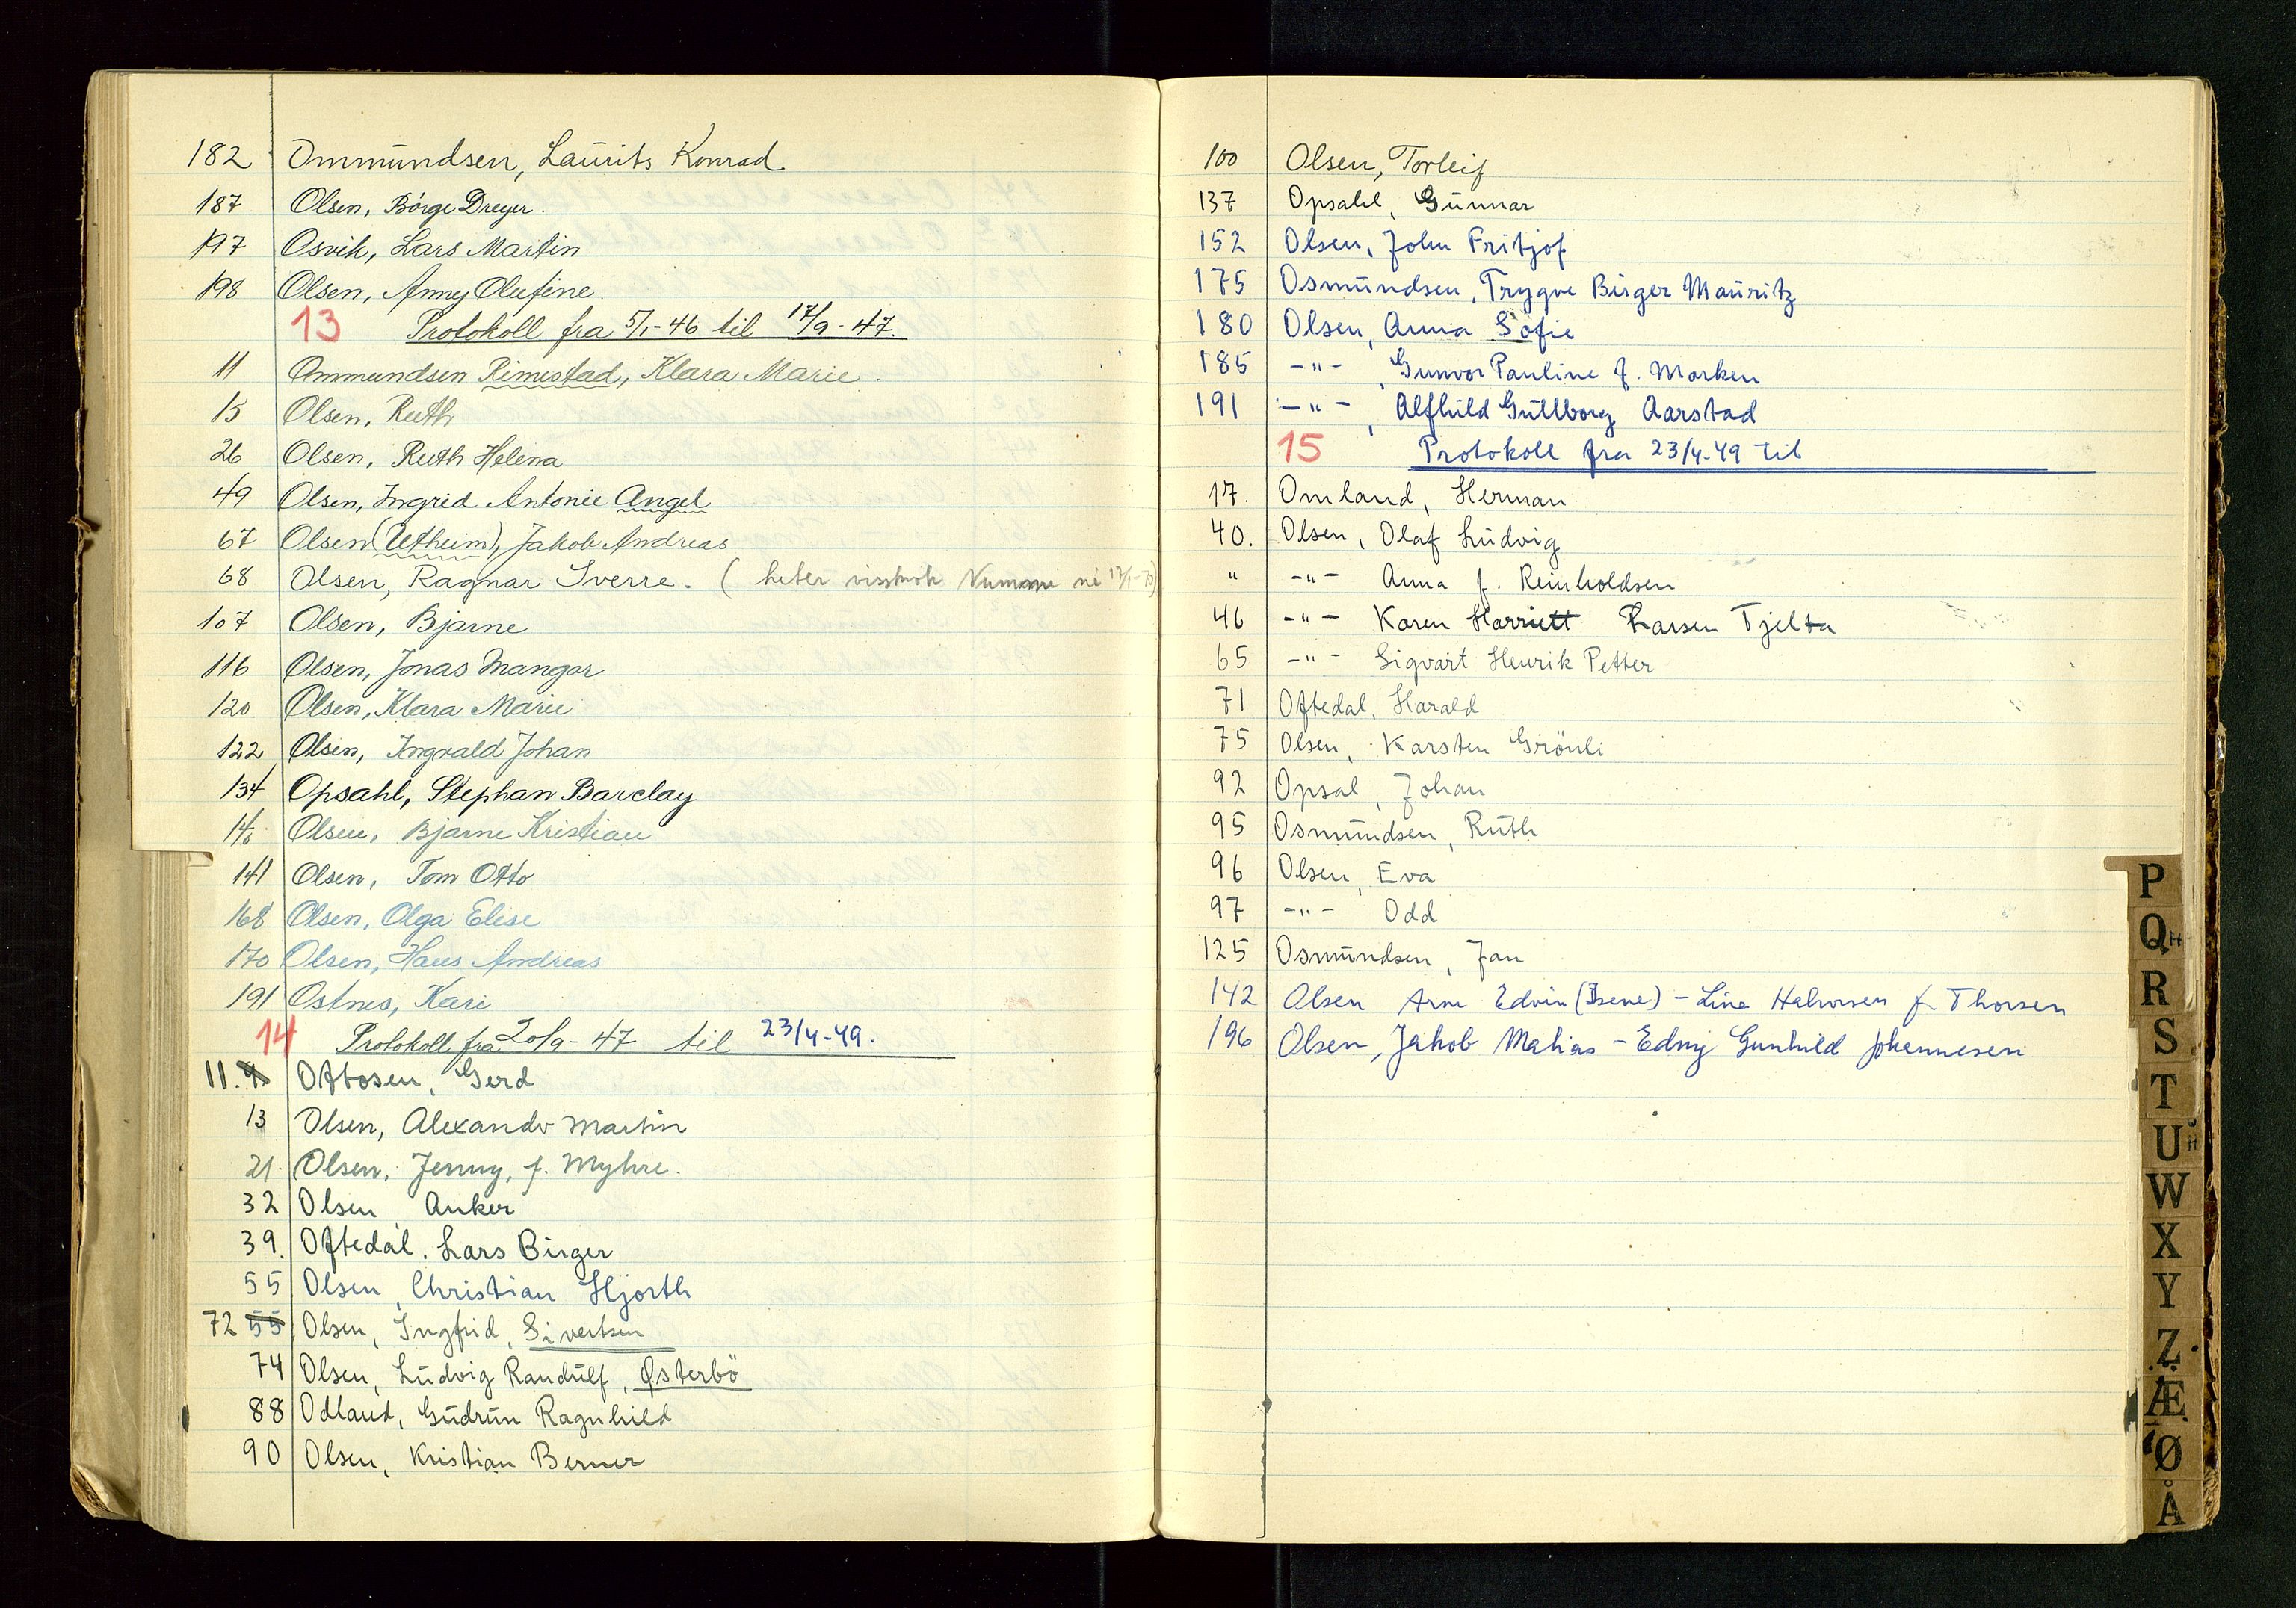 182 Ommundsen, Laurits Konrad
187 Olsen, Börge Dreyer.
197 Osvik, Lars Martin
198 Olsen, Anny Olufine.
13 Protokoll fra 5/1-46 til 17/9-47.
11 Ommundsen Rimestad, Klara Marie.
15 Olsen, Ruth
26 Olsen, Ruth Helena
49 Olsen, Ingrid Antonie Angel
67 Olsen (Utheim), Jakob Andreas
68 Olsen, Ragnar Sverre. (heter
107 Olsen, Bjarne
116 Olsen, Jonas Mangor
120 Olsen, Klara Marie
122 Olsen, Ingvald Johan
134 Opsahl, Stephan Barclay
Olsen, Bjarne Kristian
141 Olsen, Tom Otto
168 Olsen, Olga Elise
170 Olsen, Hans Andreas
191 Ostnes, Kari
14 Protokoll fra 20/9-47 til 23/4-49.
11. Ottosen, Gerd
13 Olsen, Alexander Martin
21 Olsen, Jenny, f. Myhre.
32 Olsen Anker
39. Oftedal. Lars Birger
55 Olsen, Christian Hjorth
72 55 Olsen, Ingfrid, Sivertsen
74 Olsen, Ludvig Randulf, Østerbö
88 Odland, Gudrun Ragnhild
90 Olsen, Kristian Berner
100 Olsen, Torleif
137 Opsahl, Gunnar
152 Olsen, John Fritjof
175 Osmundsen, Trygve Birger Mauritz
180 Olsen, Anna Sofie
185 -"- , Gunvor Pauline f. Marken
191 -"- , Alfhild Gullborg Aarstad
15 Protokoll fra 23/4-49 til
17. Omland, Herman
40. Olsen, Olaf Ludvig
" -"- Anna f. Reinholdsen
46 -"- Karen Harriett Larsen Tjelta
65 -"- Sigvart Henrik Petter
71 Oftedal, Harald
75 Olsen, Karsten Grönli
92 Opsal, Johan
95 Osmundsen, Ruth
96 Olsen, Eva
97 -"- Odd
125 Osmundsen, Jan
142 Olsen Arne Edvin (Isene) - Lina Halvorsen f. Thorsen
196 Olsen, Jakob Mathias - Edny Gunhild Johannesen
P
Q
R
S
T
U
W
X
Y
Z
Æ
Ø
Å